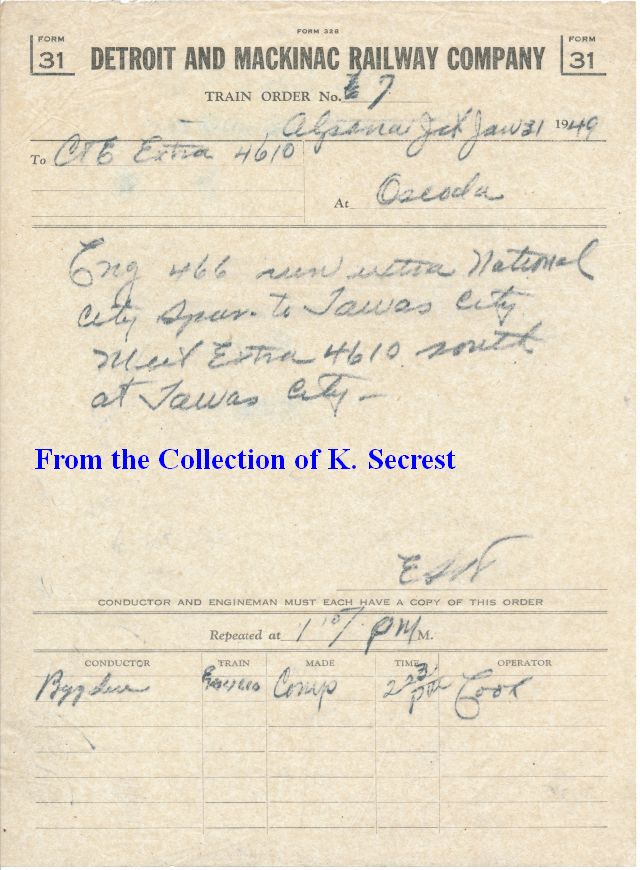 FORM 328
FORM 31
DETROIT AND MACKINAC RAILWAY COMPANY
FORM 31
TRAIN ORDER No. 7
Alpena Jct Jan 31 1949
To C&E Extra 4610
At Oscoda
Eng 466 run extra National
City Spur to Tawas City
Meet Extra 4610 south
at Tawas City
From the Collection of K. Secrest
CONDUCTOR AND ENGINEMAN MUST EACH HAVE A COPY OF THIS ORDER
Repeated at 1 07 PM M.
CONDUCTOR TRAIN MADE TIME OPERATOR
Comp 2 23 pm Cook